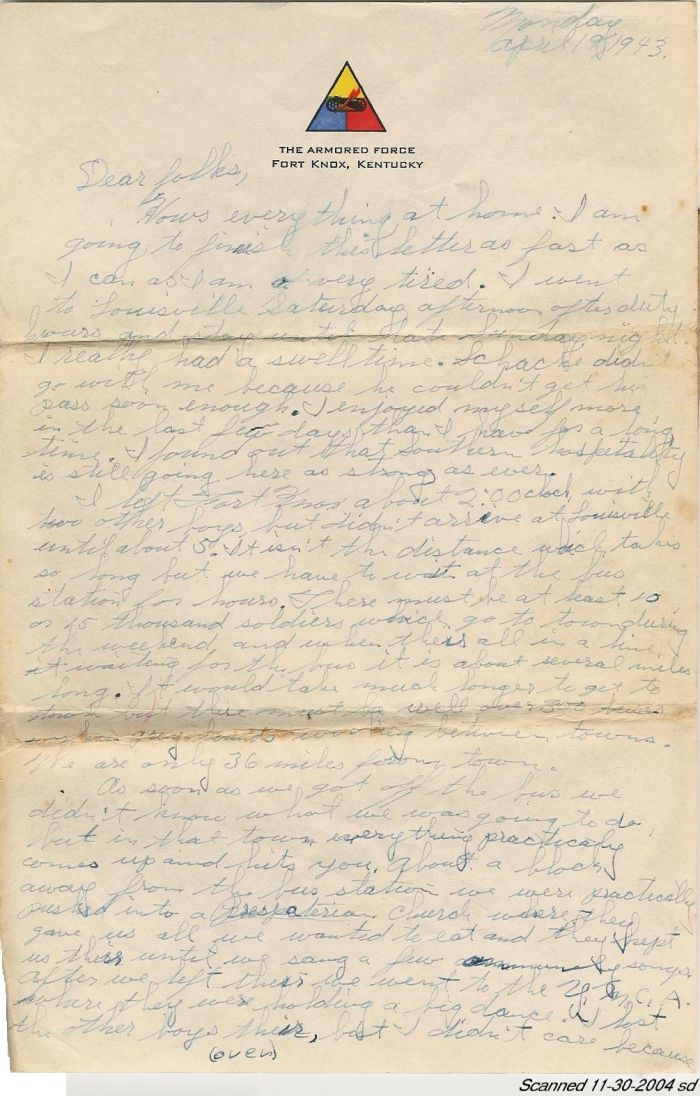 Monday
April 19, 1943.
THE ARMORED FORCE
FORT KNOX, KENTUCKY
Dear folks,
Hows everything at home. I am
going to finish this letter as fast as
I can as I am very tired. I went
to Louisville Saturday afternoon after duty
hours and stay until late Sunday night.
I really had a swell time. Schacke didn't
go with me because he couldn't get his
pass soon enough. I enjoyed myself more
in the last few days than I have for a long
time. I found out that southern hospetality
is still going here as strong as ever.
I left Fort Knox about 2:00 clock with
two other boys, but didn't arrive at Louisville
until about 5. It isn't the distance which takes
so long but we have to wait at the bus
station for hours. There must be at least 10
or 15 thousand soldiers which go to town during
the weekend and when theirs all in a line
waiting for the bus it is about several miles
long. It would take much longer to get to
town but there must be well over 300 buses
greyhounds working between towns.
We are only 36 miles from town.
As soon as we got off the bus we
didn't know what we was going to do,
but in that town everything practically
comes up and hits you. About a block
away from the bus station we were practically
pushed into a Prespaterian Church where they
gave us all we wanted to eat and they kept
us their until we sang a few songs.
After we left their we went to the Y.M.C.A.
where they were holding a big dance. I lost
the other boys their, but I didn't care because
(over)
Scanned 11-30-2004 sd